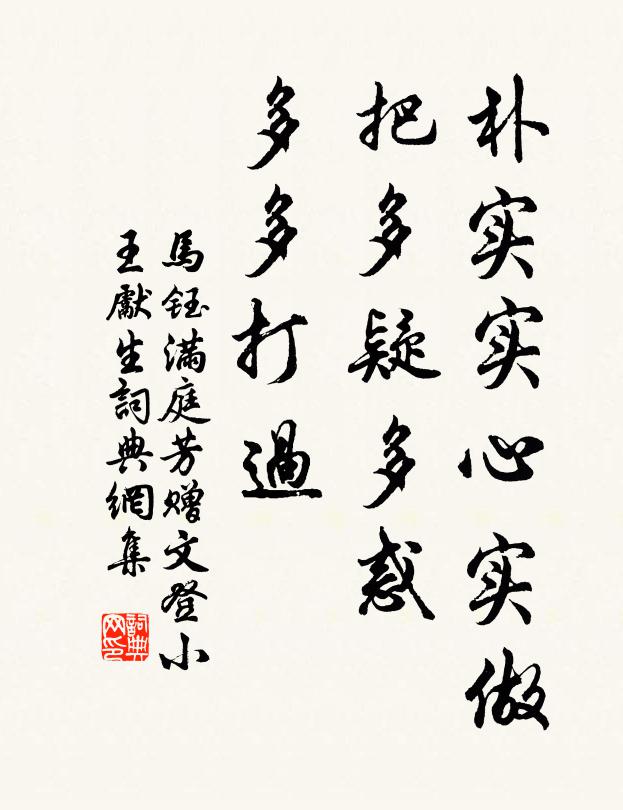 朴实实心实做
把多疑多惑
多多打過
馬鈺满庭芳赠文登小
王獻生詞典網集
詞典网印